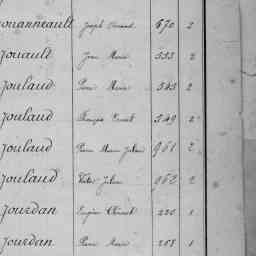 ouanneault Joseph 670 2
Jouault Jean Marie 533 2
Joulaud Pierre Marie 543 2
Joulaud François Ernest 549 2
Joulaud Pierre Marie Julien 961 2
Joulaud Victor Julien 962 2
Jourdan Eugène Clément 220 1
Jourdan Pierre Marie 1